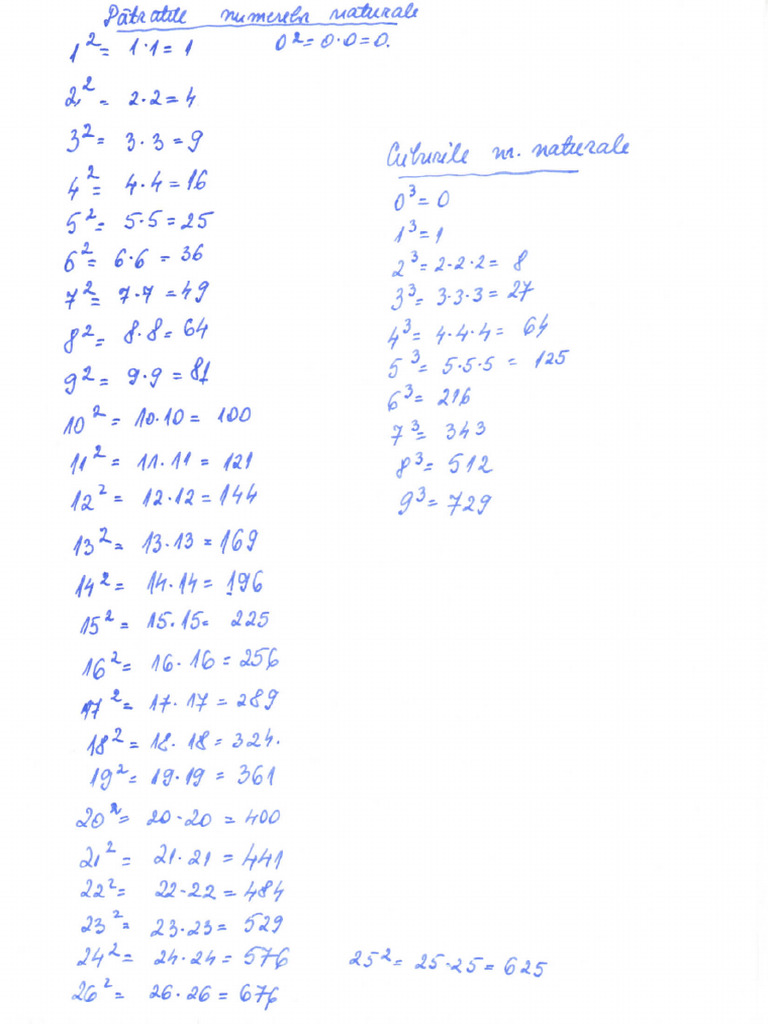 Pătratele numerelor naturale
1² = 1·1 = 1
0² = 0·0 = 0.
2² = 2·2 = 4
3² = 3·3 = 9
4² = 4·4 = 16
5² = 5·5 = 25
6² = 6·6 = 36
7² = 7·7 = 49
8² = 8·8 = 64
9² = 9·9 = 81
10² = 10·10 = 100
11² = 11·11 = 121
12² = 12·12 = 144
13² = 13·13 = 169
14² = 14·14 = 196
15² = 15·15 = 225
16² = 16·16 = 256
17² = 17·17 = 289
18² = 18·18 = 324.
19² = 19·19 = 361
20² = 20·20 = 400
21² = 21·21 = 441
22² = 22·22 = 484
23² = 23·23 = 529
24² = 24·24 = 576
25² = 25·25 = 625
26² = 26·26 = 676
Cuburile nr. naturale
0³ = 0
1³ = 1
2³ = 2·2·2 = 8
3³ = 3·3·3 = 27
4³ = 4·4·4 = 64
5³ = 5·5·5 = 125
6³ = 216
7³ = 343
8³ = 512
9³ = 729